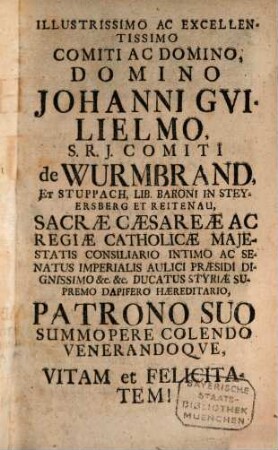 ILLUSTRISSIMO AC EXCELLEN-
TISSIMO
COMITI AC DOMINO,
DOMINO
JOHANNI GVI-
LIELMO,
S. R. J. COMITI
de WURMBRAND,
ET STUPPACH, LIB. BARONI IN STEY-
ERSBERG ET REITENAU,
SACRÆ CÆSAREÆ AC
REGIÆ CATHOLICÆ MAJE-
STATIS CONSILIARIO INTIMO AC SE-
NATUS IMPERIALIS AULICI PRÆSIDI DI-
GNISSIMO &c. &c. DUCATUS STYRIÆ SU-
PREMO DAPIFERO HÆREDITARIO,
PATRONO SUO
SUMMOPERE COLENDO
VENERANDOQVE,
VITAM et FELICITA-
TEM!
BAYERISCHE
STAATS-
BIBLIOTHEK
MUENCHEN